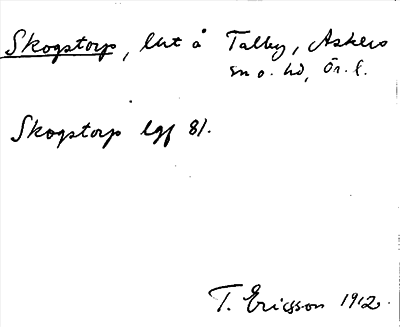 Skogstorp, lht å Talby, Askers
sn o. hd, Ör. l.
Skogstorp lgf 81.
T. Ericsson 1912.